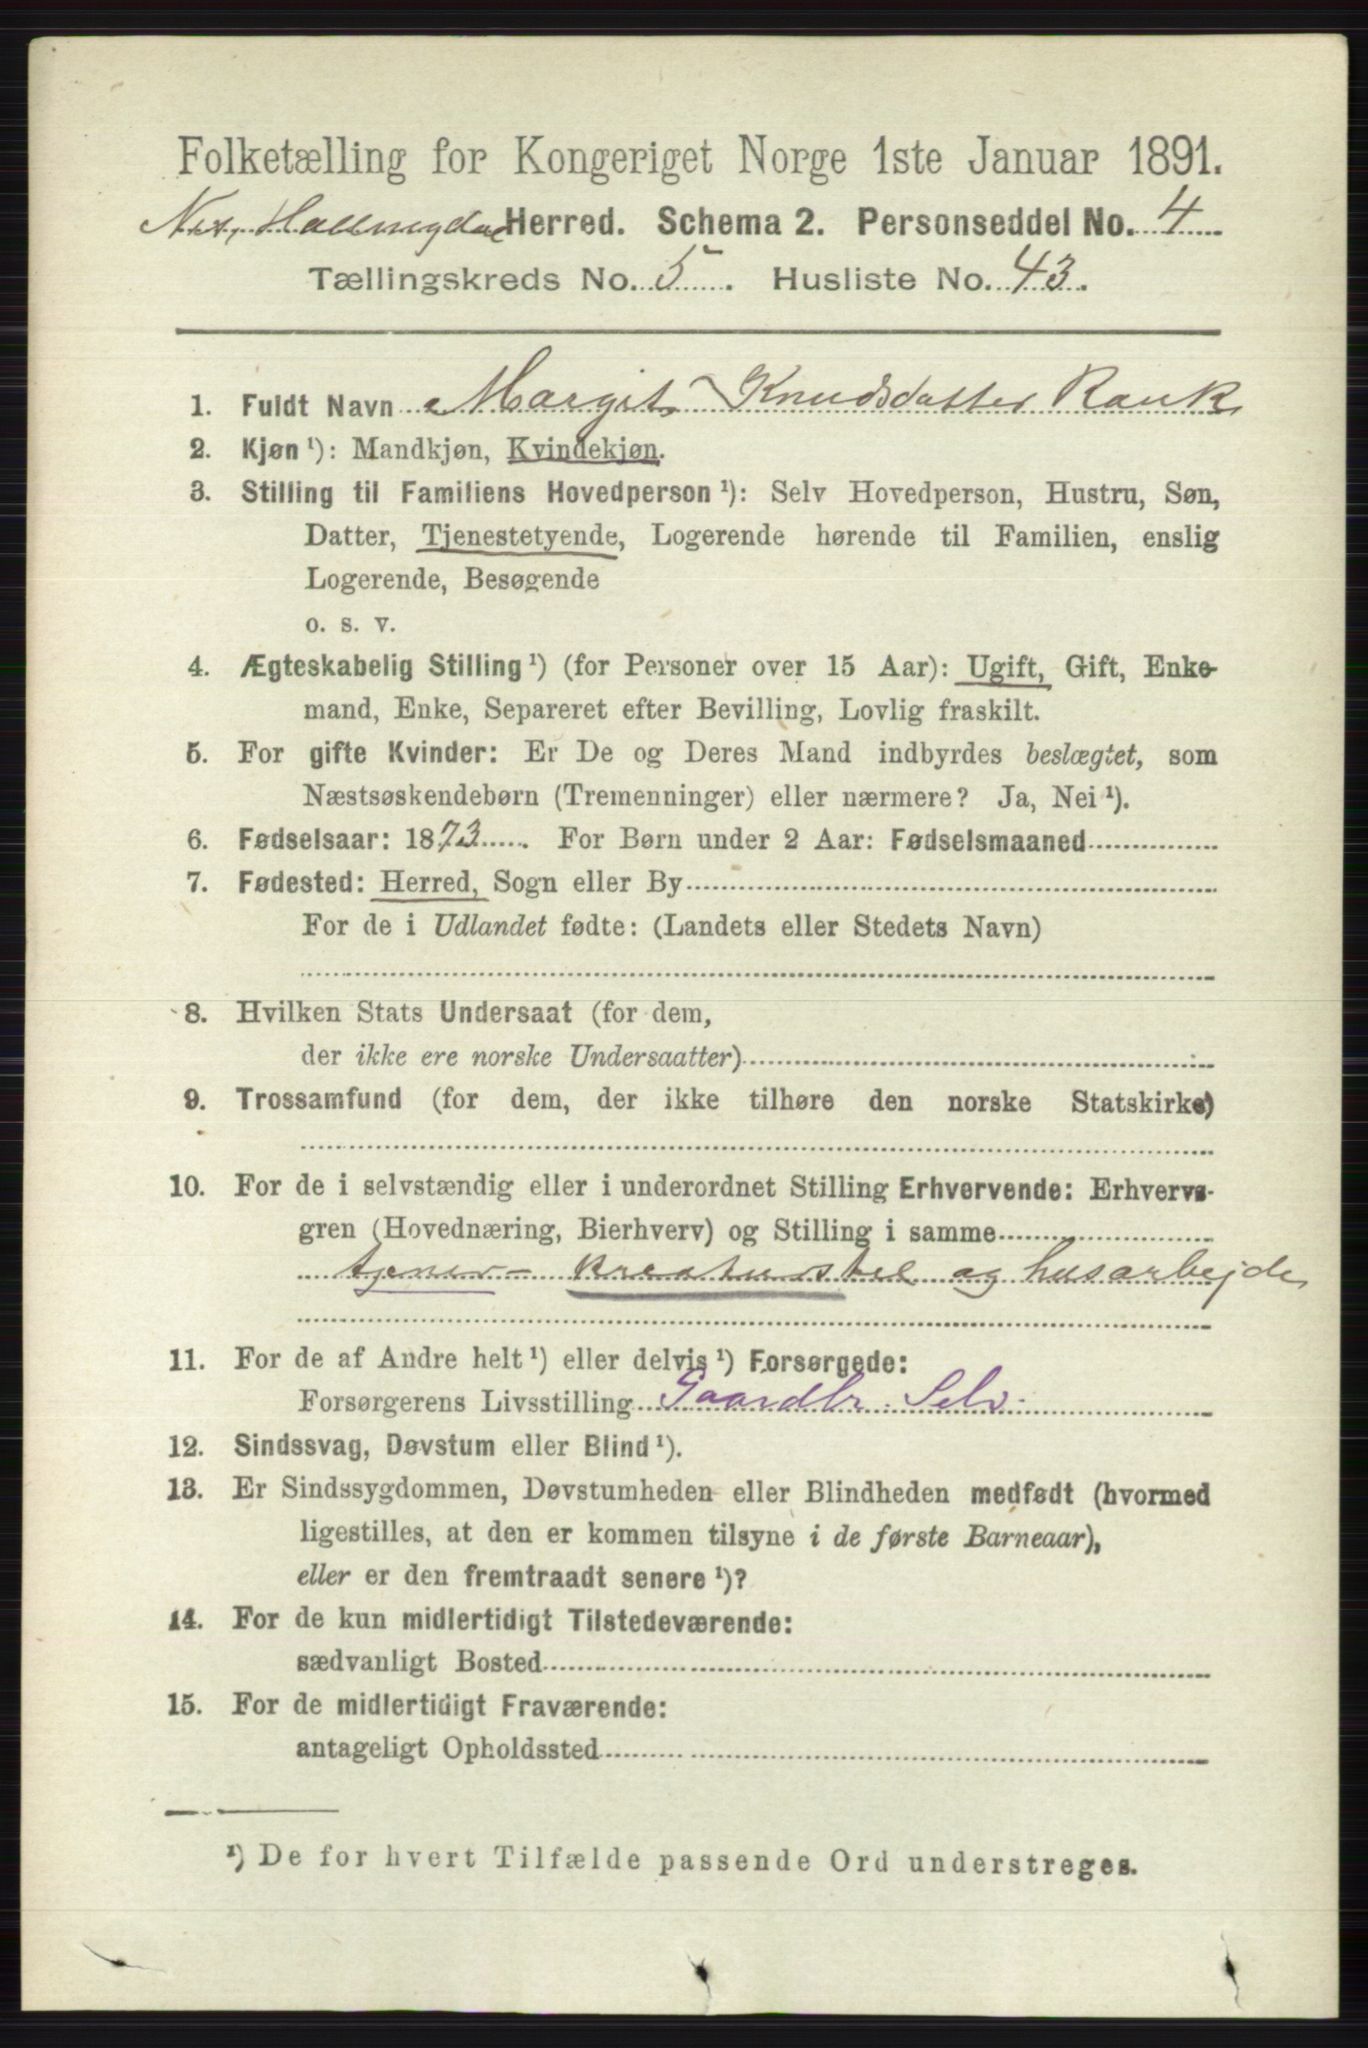 Folketælling for Kongeriget Norge 1ste Januar 1891.
Nes, Hallingdal Herred. Schema 2. Personseddel No. 4
Tællingskreds No. 5. Husliste No. 43.
1. Fuldt Navn Margit Knudsdatter Rauk
2. Kjøn ¹): Mandkjøn, Kvindekjøn.
3. Stilling til Familiens Hovedperson ¹): Selv Hovedperson, Hustru, Søn,
Datter, Tjenestetyende, Logerende hørende til Familien, enslig
Logerende, Besøgende
o. s. v.
4. Ægteskabelig Stilling ¹) (for Personer over 15 Aar): Ugift, Gift, Enke-
mand, Enke, Separeret efter Bevilling, Lovlig fraskilt.
5. For gifte Kvinder: Er De og Deres Mand indbyrdes beslægtet, som
Næstsøskendebørn (Tremenninger) eller nærmere? Ja, Nei ¹).
6. Fødselsaar: 1873. For Børn under 2 Aar: Fødselsmaaned
7. Fødested: Herred, Sogn eller By
For de i Udlandet fødte: (Landets eller Stedets Navn)
8. Hvilken Stats Undersaat (for dem,
der ikke ere norske Undersaatter)
9. Trossamfund (for dem, der ikke tilhøre den norske Statskirke)
10. For de i selvstændig eller i underordnet Stilling Erhvervende: Erhvervs-
gren (Hovednæring, Bierhverv) og Stilling i samme
tjener - kreaturstel og husarbejde
11. For de af Andre helt ¹) eller delvis ¹) Forsørgede:
Forsørgerens Livsstilling Gaardbr. Selv.
12. Sindssvag, Døvstum eller Blind ¹).
13. Er Sindssygdommen, Døvstumheden eller Blindheden medfødt (hvormed
ligestilles, at den er kommen tilsyne i de første Barneaar),
eller er den fremtraadt senere ¹)?
14. For de kun midlertidigt Tilstedeværende:
sædvanligt Bosted
15. For de midlertidigt Fraværende:
antageligt Opholdssted
¹) De for hvert Tilfælde passende Ord understreges.